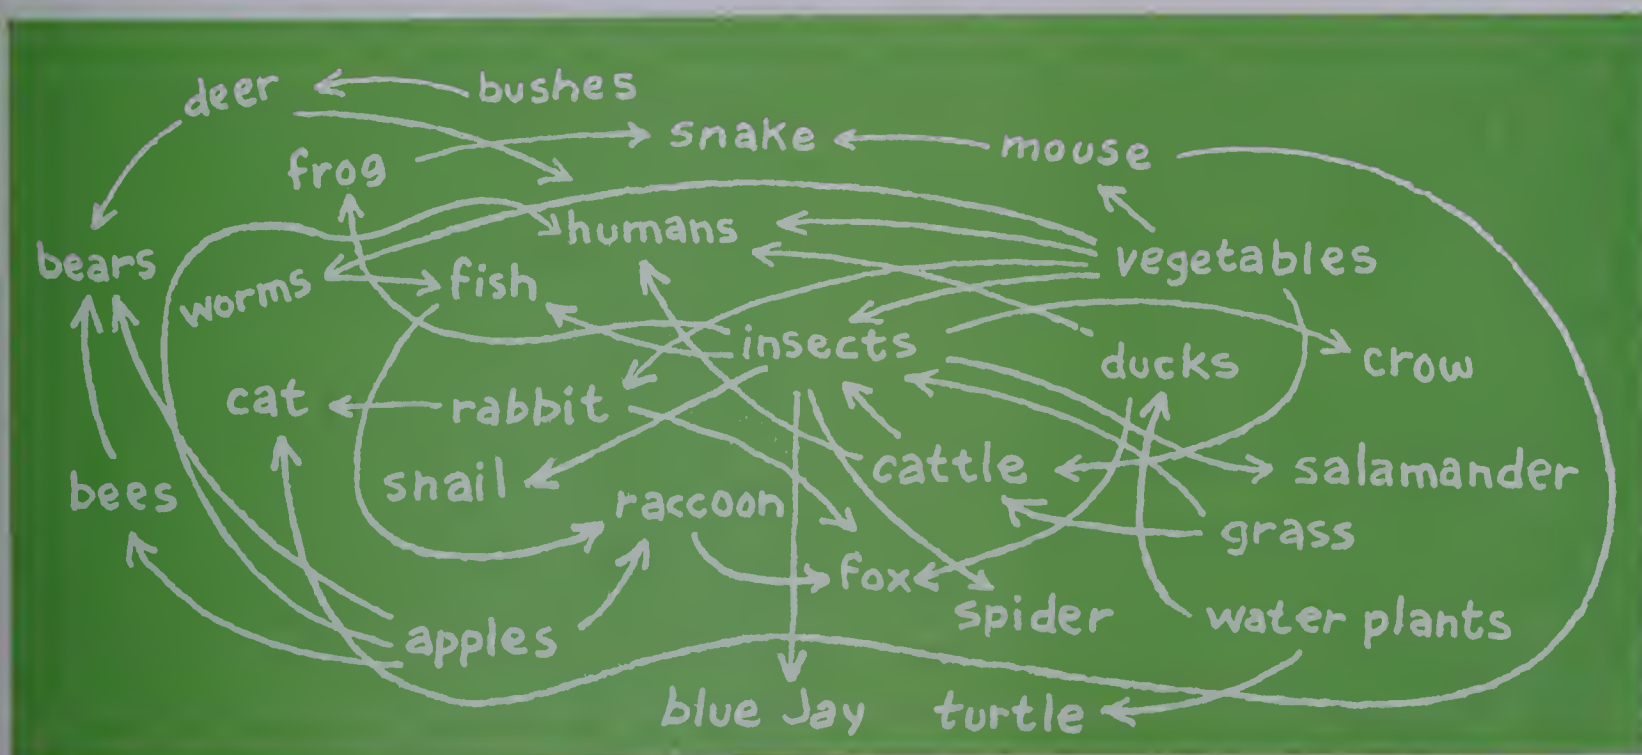 deer
bushes
snake
mouse
frog
humans
vegetables
bears
worms
fish
insects
ducks
crow
cat
rabbit
snail
cattle
salamander
bees
raccoon
grass
fox
spider
water plants
apples
blue Jay
turtle